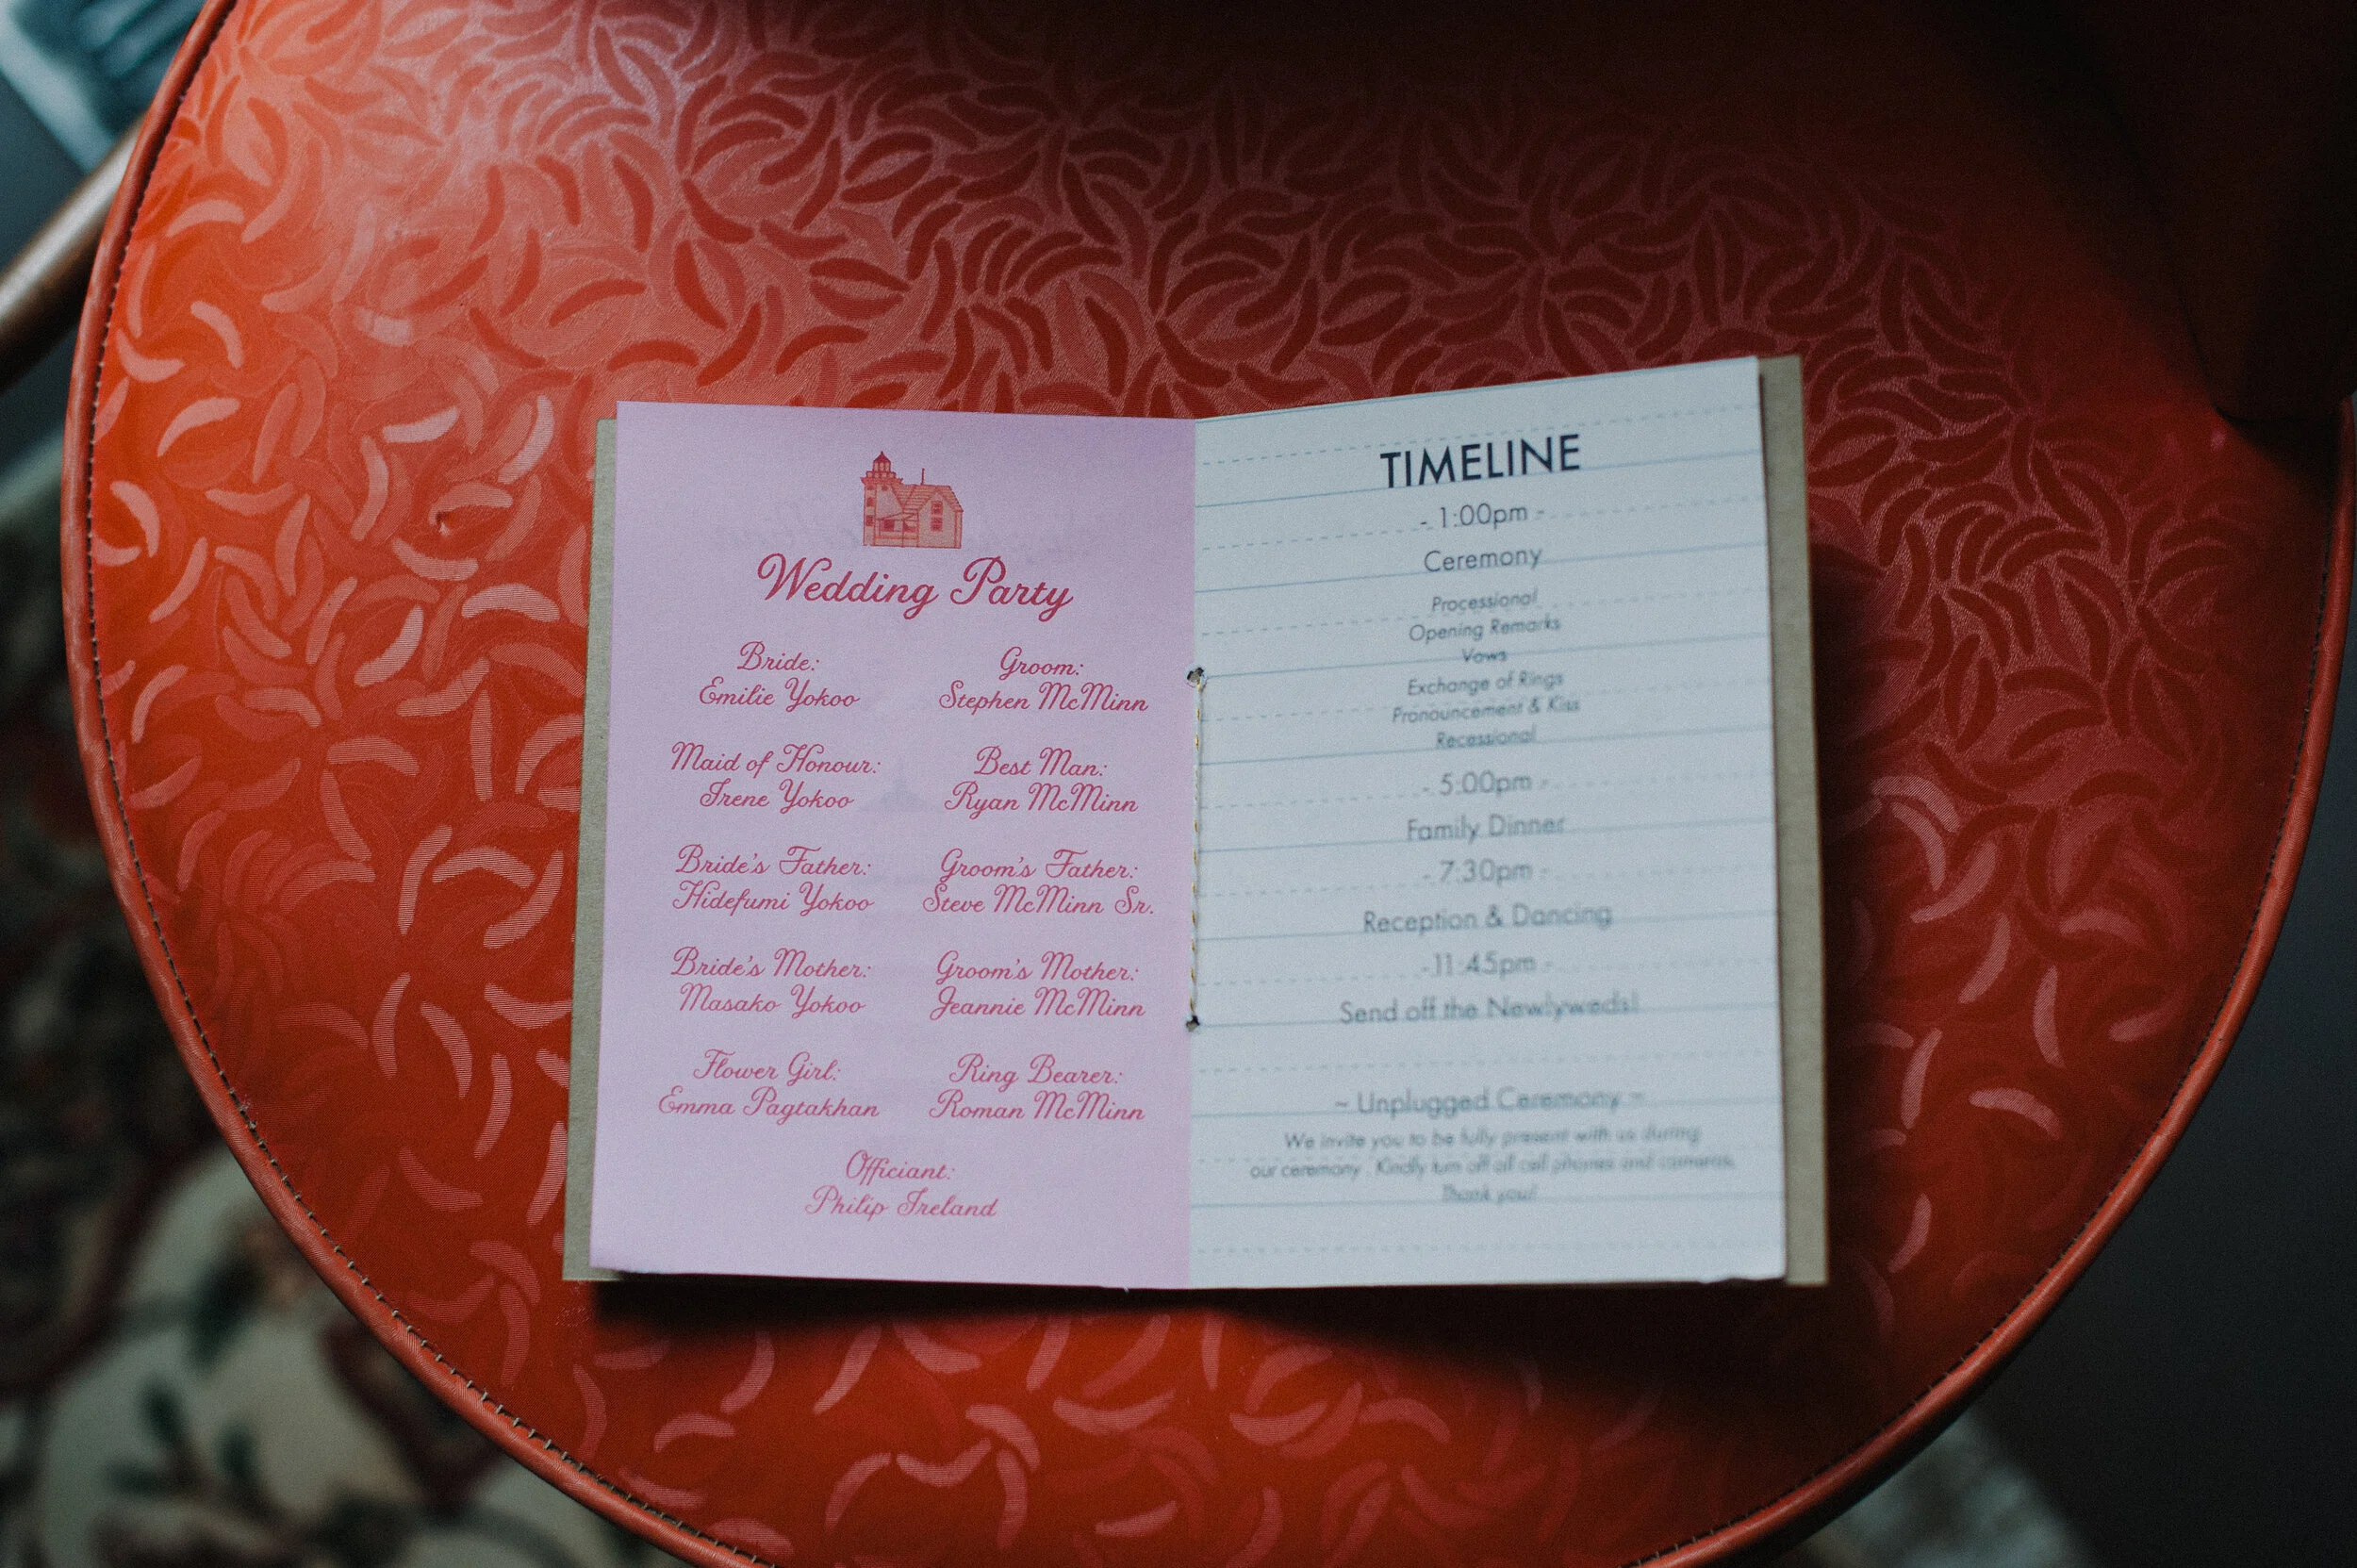 Wedding Party
Bride:
Emilie Yokoo
Groom:
Stephen McMinn
Maid of Honour:
Irene Yokoo
Best Man:
Ryan McMinn
Bride's Father:
Hidefumi Yokoo
Groom's Father:
Steve McMinn Sr.
Bride's Mother:
Masako Yokoo
Groom's Mother:
Jeannie McMinn
Flower Girl:
Emma Pagtakhan
Ring Bearer:
Roman McMinn
Officiant:
Philip Ireland
TIMELINE
- 1:00pm -
Ceremony
Processional
Opening Remarks
Vows
Exchange of Rings
Pronouncement & Kiss
Recessional
- 5:00pm -
Family Dinner
- 7:30pm -
Reception & Dancing
- 11:45pm -
Send off the Newlyweds!
~ Unplugged Ceremony ~
We invite you to be fully present with us during
our ceremony . Kindly turn off all cell phones and cameras.
Thank you!